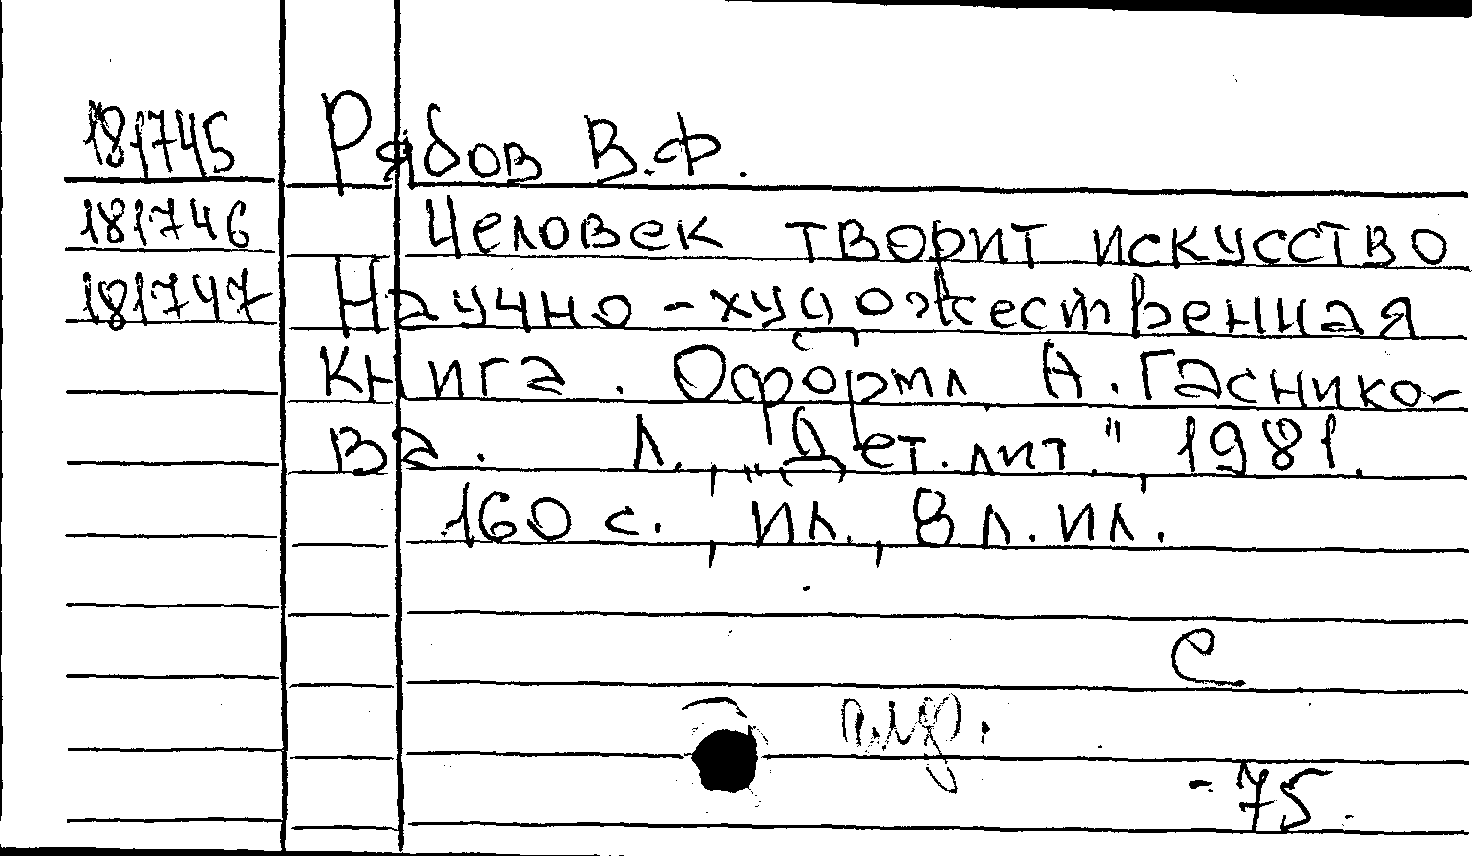 181745 Рябов В.Ф.
181746 Человек творит искусство
181747 Научно-художественная
книга. Оформл. А. Гаснико-
ва. Л., "Дет. лит.", 1981.
160 с., ил., 8 л. ил.
С
-75.